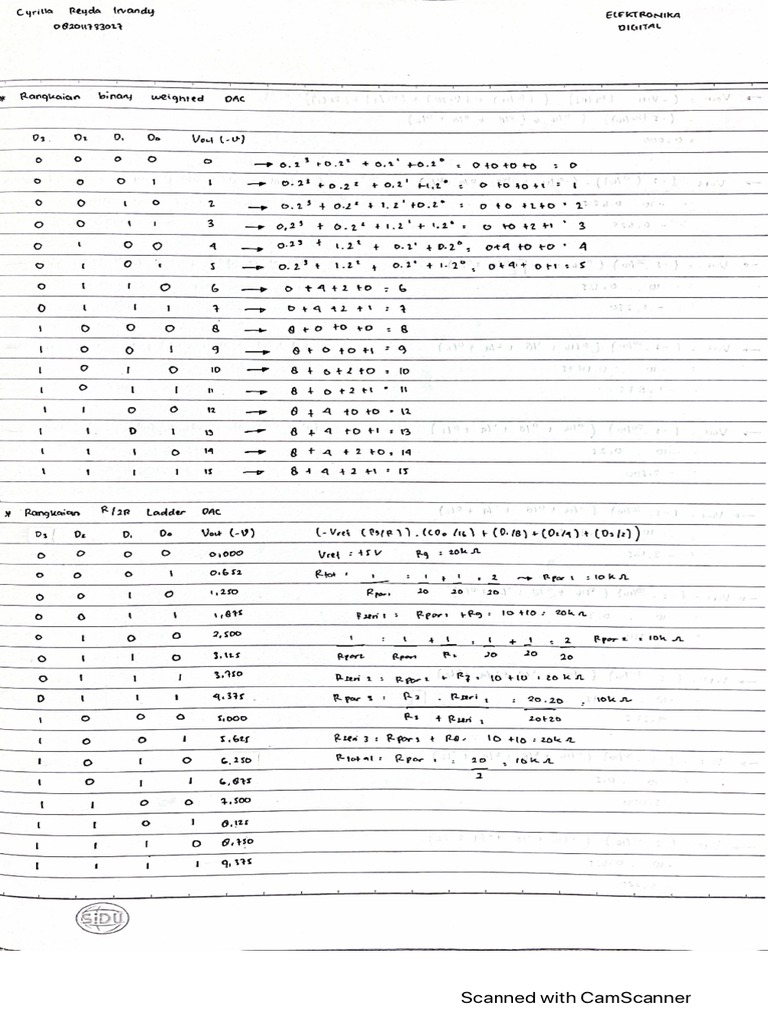 Cyrilla Reyda Irvandy
082011733027
ELEKTRONIKA
DIGITAL
* Rangkaian binary weighted DAC
D3 D2 D1 D0 Vout (-V)
0 0 0 0 0 → 0.2³ + 0.2² + 0.2¹ + 0.2⁰ = 0+0+0+0 = 0
0 0 0 1 1 → 0.2³ + 0.2² + 0.2¹ + 1.2⁰ = 0+0+0+1 = 1
0 0 1 0 2 → 0.2³ + 0.2² + 1.2¹ + 0.2⁰ = 0+0+2+0 = 2
0 0 1 1 3 → 0.2³ + 0.2² + 1.2¹ + 1.2⁰ = 0+0+2+1 = 3
0 1 0 0 4 → 0.2³ + 1.2² + 0.2¹ + 0.2⁰ = 0+4+0+0 = 4
0 1 0 1 5 → 0.2³ + 1.2² + 0.2¹ + 1.2⁰ = 0+4+0+1 = 5
0 1 1 0 6 → 0+4+2+0 = 6
0 1 1 1 7 → 0+4+2+1 = 7
1 0 0 0 8 → 8+0+0+0 = 8
1 0 0 1 9 → 8+0+0+1 = 9
1 0 1 0 10 → 8+0+2+0 = 10
1 0 1 1 11 → 8+0+2+1 = 11
1 1 0 0 12 → 8+4+0+0 = 12
1 1 0 1 13 → 8+4+0+1 = 13
1 1 1 0 14 → 8+4+2+0 = 14
1 1 1 1 15 → 8+4+2+1 = 15
* Rangkaian R/2R Ladder DAC
D3 D2 D1 D0 Vout (-V) (-Vref (Rg/R)).((D0/16)+(D1/8)+(D2/4)+(D3/2))
0 0 0 0 0,000 Vref = +5V Rg = 20k Ω
0 0 0 1 0.652 Rtot = 1/Rpar1 = 1/20 + 1/20 = 2/20 → Rpar1 = 10k Ω
0 0 1 0 1,250
0 0 1 1 1,875 Rseri1 = Rpar1 + R9 = 10+10 = 20k Ω
0 1 0 0 2,500 1/Rpar2 = 1/Rpar1 + 1/R2 = 1/20 + 1/20 = 2/20 Rpar2 = 10k Ω
0 1 1 0 3.125
0 1 1 1 3.750 Rseri2 = Rpar2 + R7 = 10+10 = 20k Ω
0 1 1 1 4.375 Rpar3 = R3 . Rseri2 / R3 + Rseri2 = 20.20 / 20+20 = 10k Ω
1 0 0 0 5.000
1 0 0 1 5.625 Rseri3 = Rpar3 + R8 = 10+10 = 20k Ω
1 0 1 0 6,250 Rtotal = Rpar = 20/2 = 10k Ω
1 0 1 1 6,875
1 1 0 0 7.500
1 1 0 1 8.125
1 1 1 0 8,750
1 1 1 1 9,375
SiDU
Scanned with CamScanner